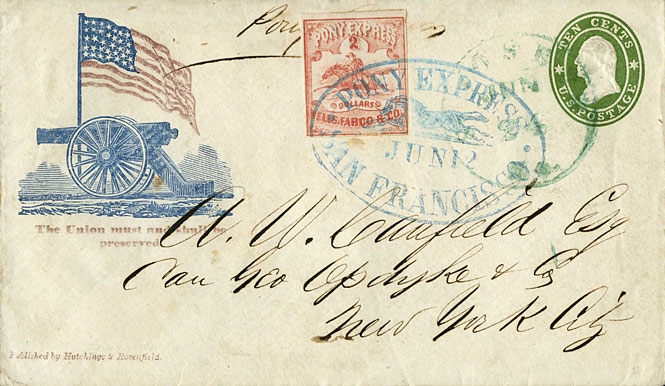 Pony
PONY EXPRESS
2
DOLLARS
WELLS, FARGO & CO.
PONY EXPRESS
JUN 12
SAN FRANCISCO
TEN CENTS
U.S. POSTAGE
The Union must and shall be
preserved
A. W. Canfield Esq
Care Geo Opdyke & Co
New York City
Published by Hutchings & Rosenfield.